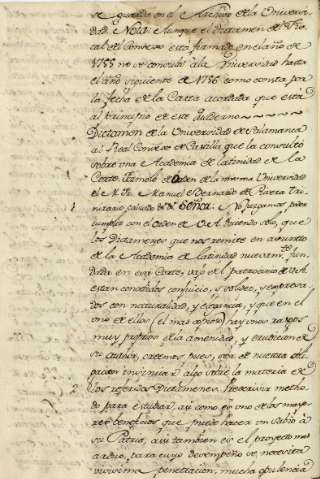 se guarda en el Archivo de la Universi-
dad. Nota: Aunque el dictamen del Fis-
cal del Consejo esta firmado en el año de
1755 no se comunicó a la Universidad hasta
el año siguiente de 1756 como consta por
la fecha de la Carta acordada que está
al principio de este quaderno
Dictamen de la Universidad de Salamanca
al Real Consejo de Castilla que la consultó
sobre una Academia de latinidad de la
Corte. Formole de Orden de la misma Universidad
el M. Manuel Bernardo de
nitario calzado Señor. No juzgamos poder
cumplir con el orden de V.A. diciendo solo, que
los Dictamenes que nos remite en assunto
de la Academia de latinidad nuevamte fun-
dada en essa Corte, vajo el patrocinio de V.A.
estan concebidos con juicio, y solidez, y expressa-
dos con naturalidad, y elegancia, y que en el
uno de ellos (el mas copioso) hay unos rasgos
muy propios de la amenidad, y erudicion de
su author, creemos pues, ser de nuestra obli-
gacion insinuar algo sobre la materia de
los referidos Dictamenes. Prescrivir metho-
do para estudiar, assi como es uno de los mayo-
res beneficios que puede hacer un Sabio à
su Patria, assi tambien es el proyecto mas
arduo, para cuyo desempeño se necesita
vivissima penetracion, mucha